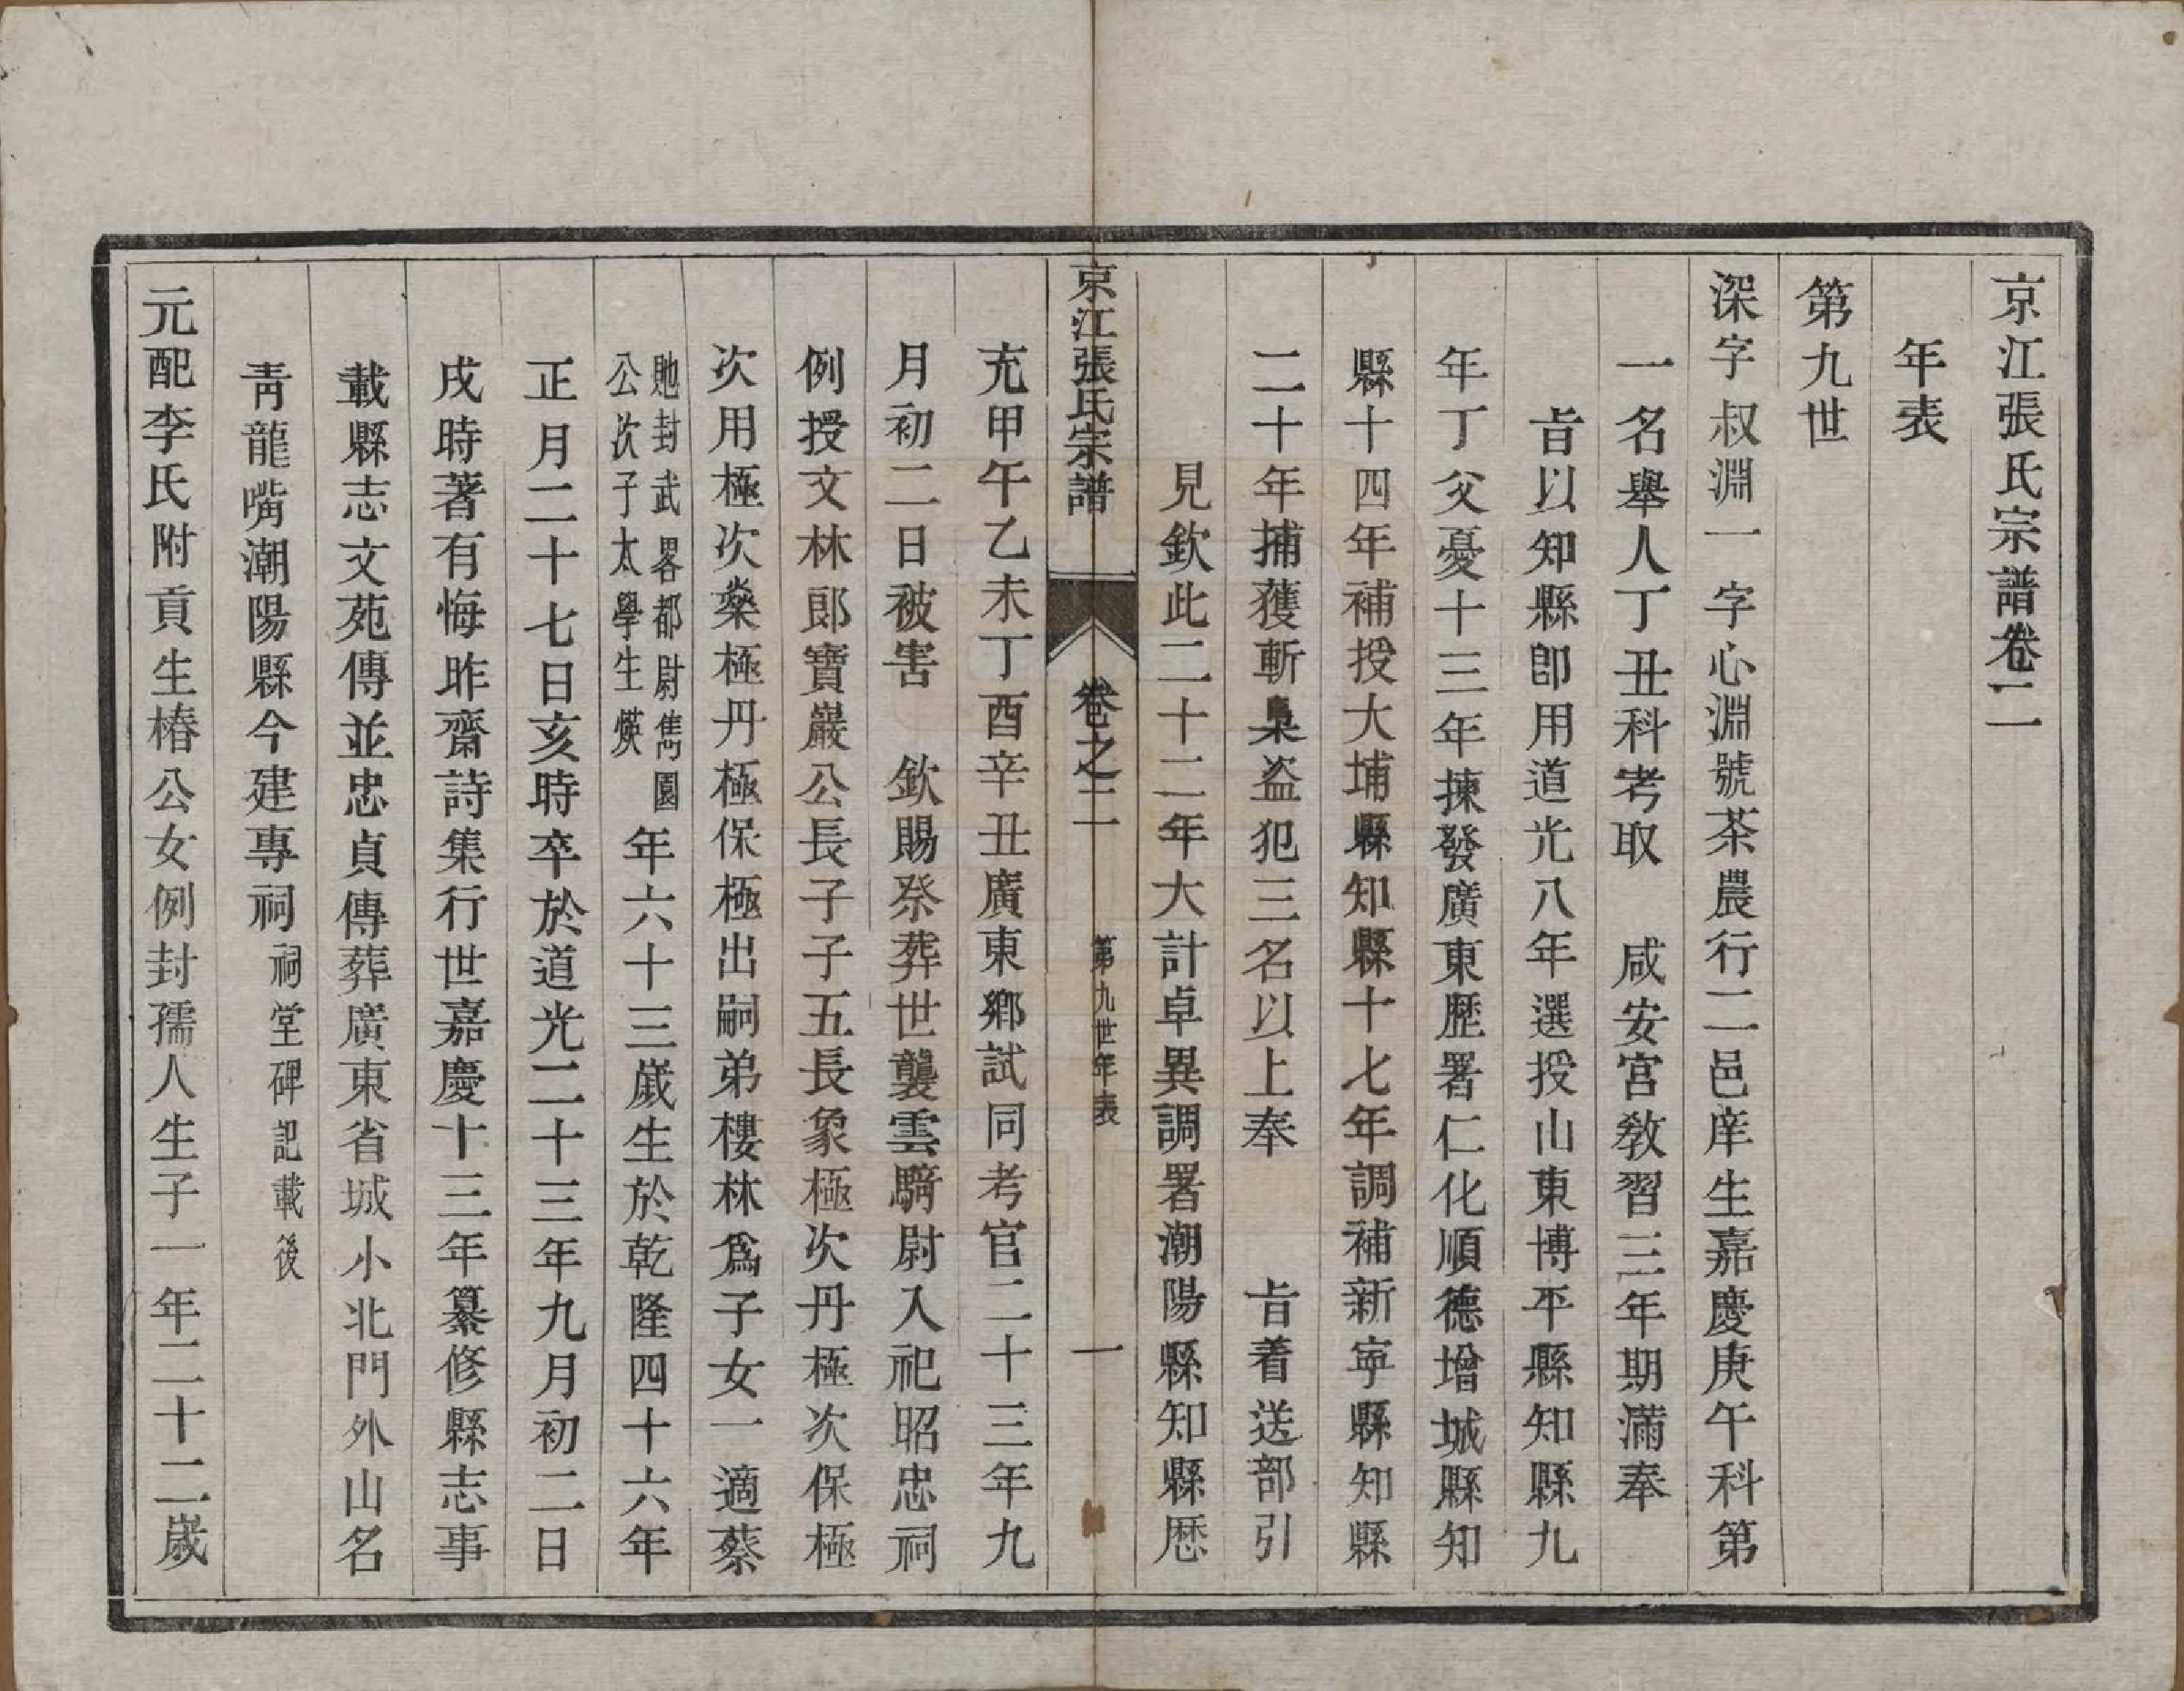 京江張氏宗譜卷二
年表
第九世
深字叔淵一字心淵號茶農行二邑庠生嘉慶庚午科第
一名舉人丁丑科考取　咸安宮敎習三年期滿奉
旨以知縣卽用道光八年選授山東博平縣知縣九
年丁父憂十三年揀發廣東歷署仁化順德增城縣知
縣十四年補授大埔縣知縣十七年調補新寧縣知縣
二十年捕獲斬梟盗犯三名以上奉　旨着送部引
見欽此二十二年大計卓異調署潮陽縣知縣歷
京江張氏宗譜　卷之二　第九世年表　一
充甲午乙未丁酉辛丑廣東鄉試同考官二十三年九
月初二日被害　欽賜祭葬世襲雲騎尉入祀昭忠祠
例授文林郎寶巖公長子子五長象極次丹極次保極
次用極次燊極丹極保極出嗣弟樓林爲子女一適蔡
貤封武畧都尉雋園
公次子太學生煐
年六十三歲生於乾隆四十六年
正月二十七日亥時卒於道光二十三年九月初二日
戌時著有悔昨齋詩集行世嘉慶十三年纂修縣志事
載縣志文苑傳並忠貞傳葬廣東省城小北門外山名
靑龍嘴潮陽縣今建專祠祠堂碑記載後
元配李氏附貢生椿公女例封孺人生子一年二十二歲